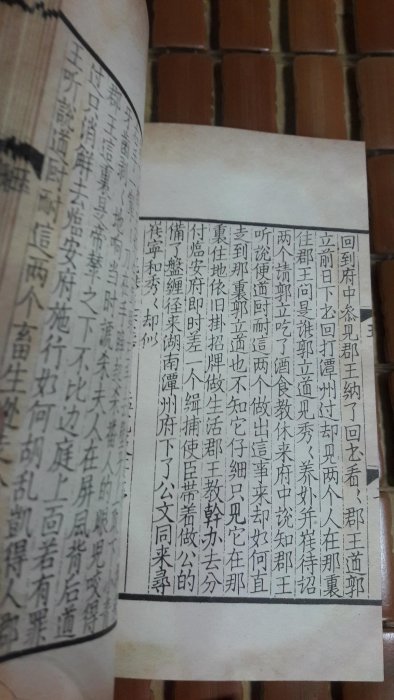 回到府中叅見郡王納了回书看〻郡王道郭
立前日下书回打潭州过却見两个人在那裏
住郡王問是誰郭立道見秀〻养娘并崔待诏
两个請郭立吃了酒食教休来府中說知郡王
听說便道叵耐這两个做出這事来却如何直
走到那裏郭立道也不知它仔细只見它在那
裏住地依旧掛招牌做生活郡王教幹办去分
付临安府即时差一个缉捕使臣带着做公的
備了盤缠径来湖南潭州府下了公文同来尋
崔寧和秀〻却似
地响当时諕杀夫人在屏風背后道
郡王這裏是帝輦之下不比边庭上面若有罪
过只消解去临安府施行如何胡乱凱得人郡
王听說道叵耐這两个畜生逃走